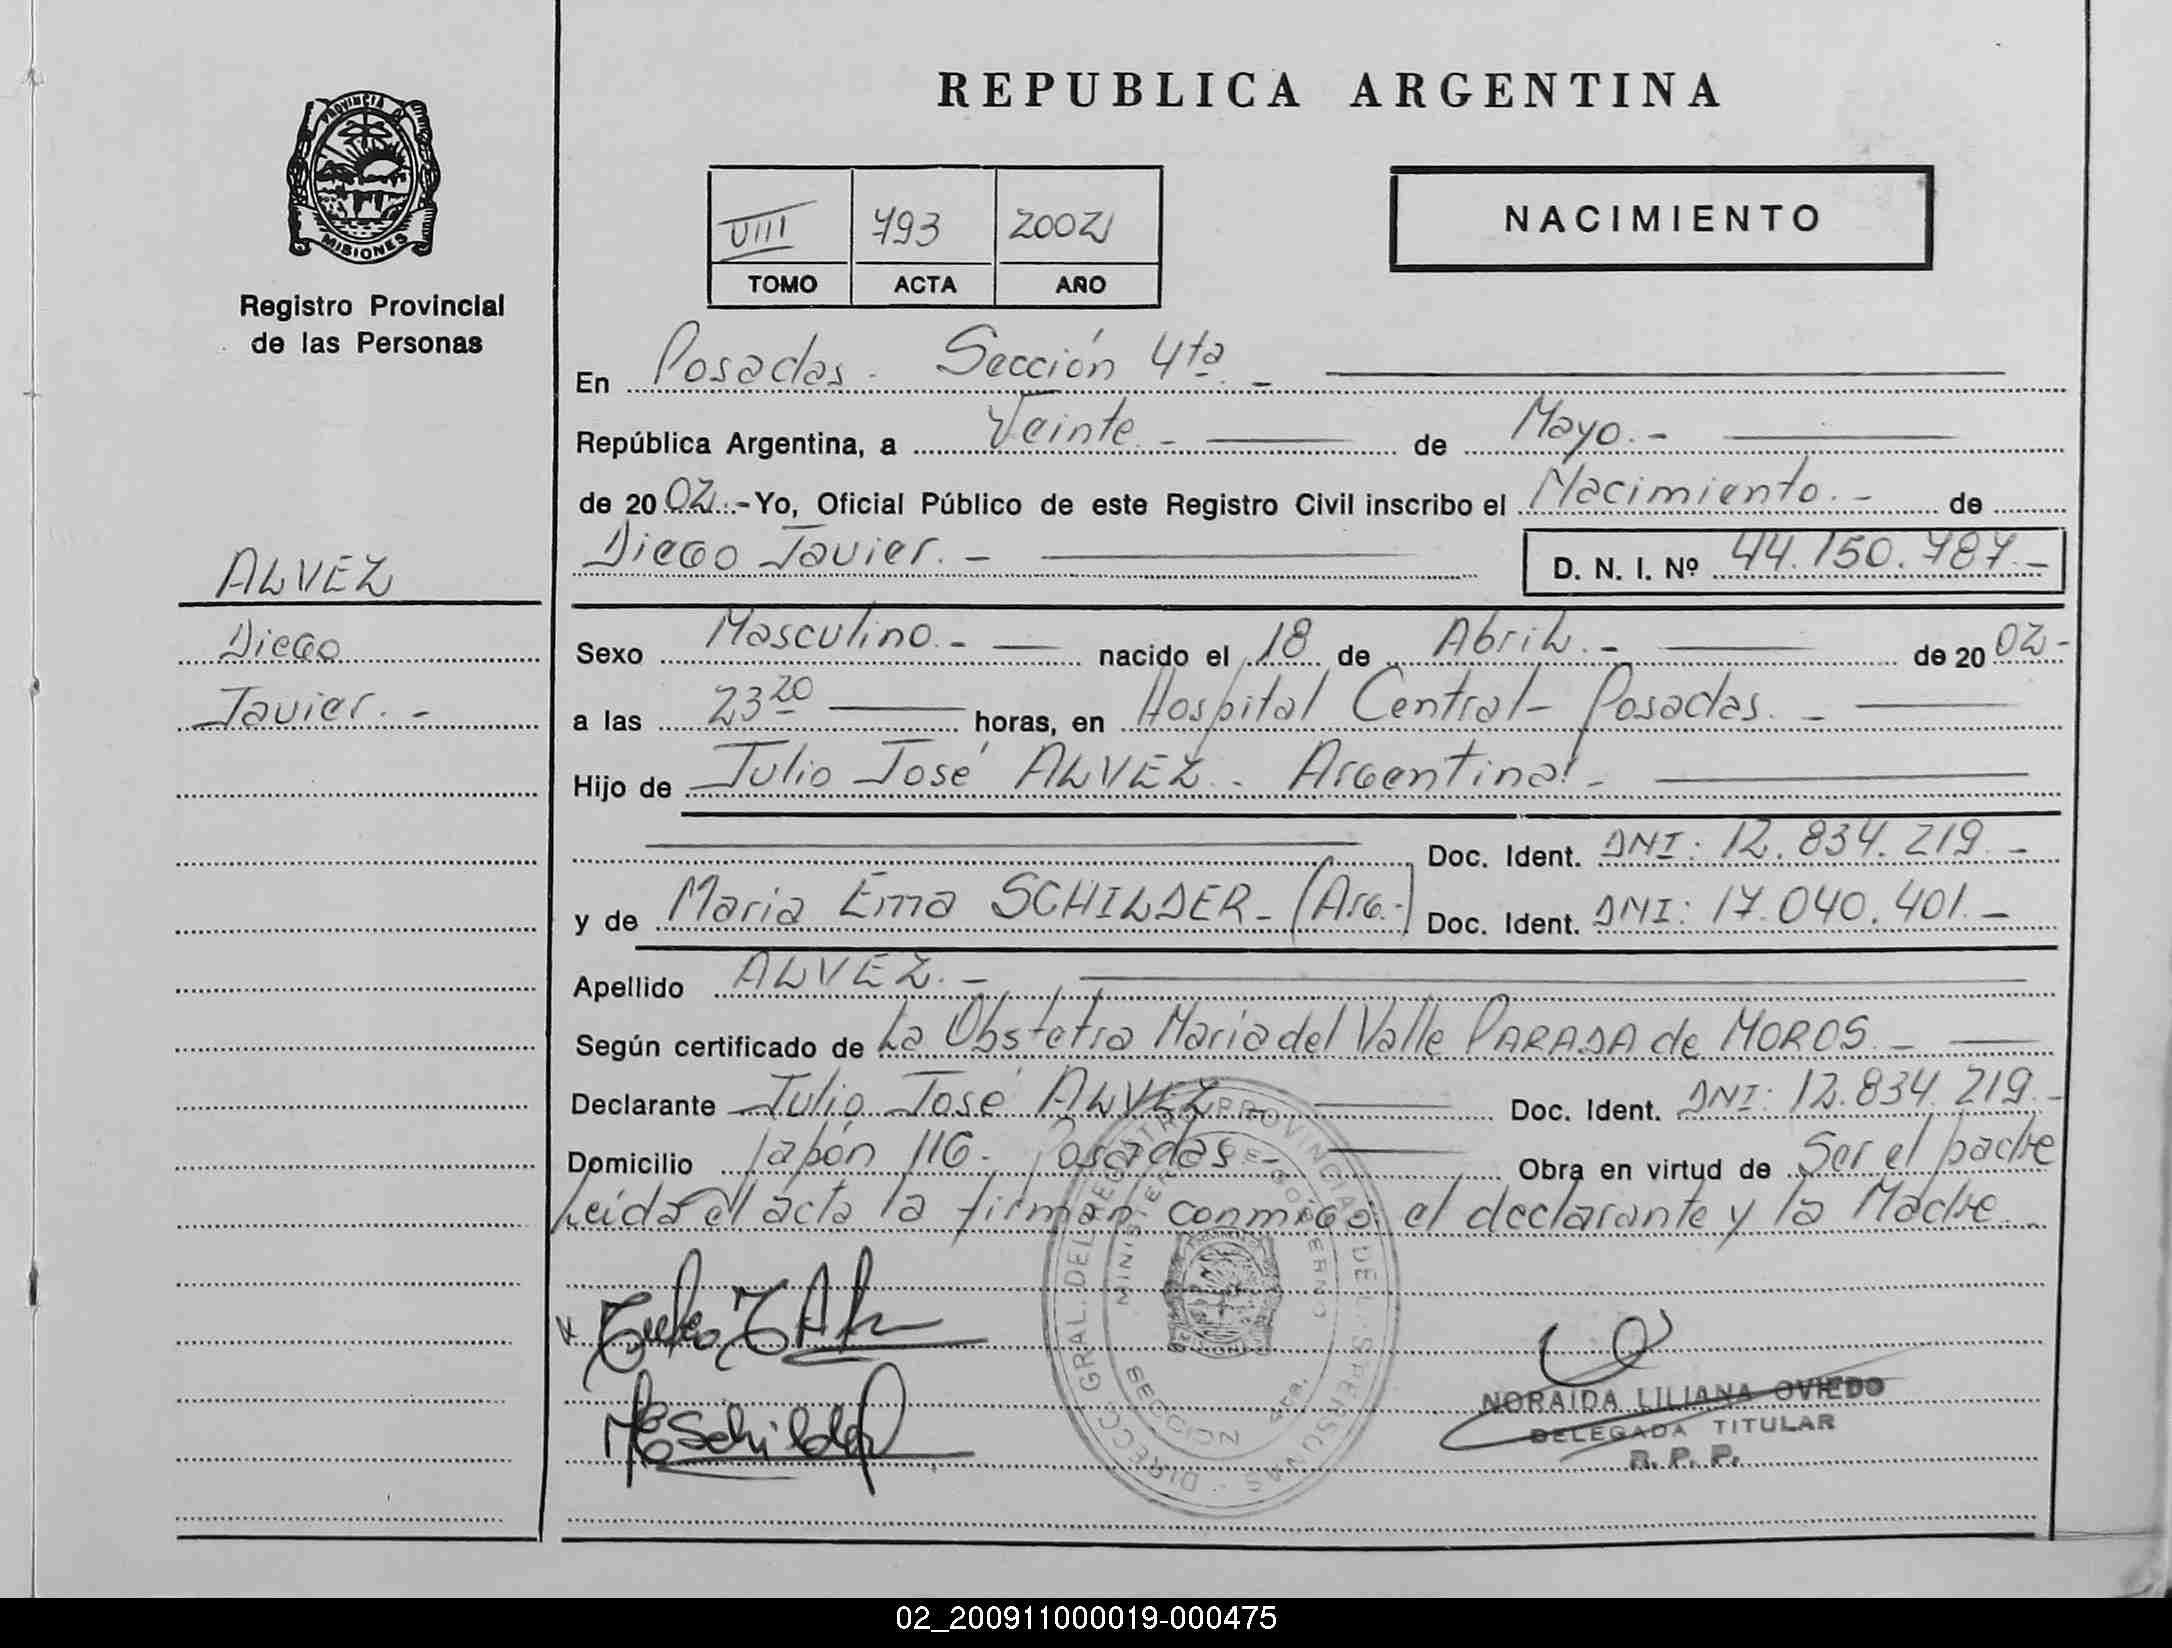 REPUBLICA ARGENTINA
PROVINCIA DE
MISIONES
Registro Provincial
de las Personas
VIII 793 2002
TOMO ACTA AÑO
NACIMIENTO
En Posadas. Sección 4ta. -
República Argentina, a Veinte. - de Mayo. -
de 2002. - Yo, Oficial Público de este Registro Civil inscribo el Nacimiento. - de
Diego Javier. - D. N. I. Nº 44.150.787. -
ALVEZ
Diego
Javier. -
Sexo Masculino. - nacido el 18 de Abril. - de 2002 -
a las 23 20 horas, en Hospital Central - Posadas. -
Hijo de Julio José ALVEZ. Argentina! -
Doc. Ident. DNI: 12.834.219. -
y de Maria Ema SCHILDER - (Arg.-) Doc. Ident. DNI: 17.040.401. -
Apellido ALVEZ. -
Según certificado de La Obstetra Maria del Valle PARADA de MOROS. -
Declarante Julio José ALVEZ - Doc. Ident. DNI: 12.834.219. -
Domicilio Japón 116 - Posadas - Obra en virtud de Ser el padre
Leida el acta la firman conmigo el declarante y la Madre.
DIRECC. GRAL. DEL REGISTRO PROVINCIAL DE LAS PERSONAS
MINISTERIO DE GOBIERNO
SECCION 4ta.
ME Schilder
NORAIDA LILIANA OVIEDO
DELEGADA TITULAR
R. P. P.
02_200911000019-000475